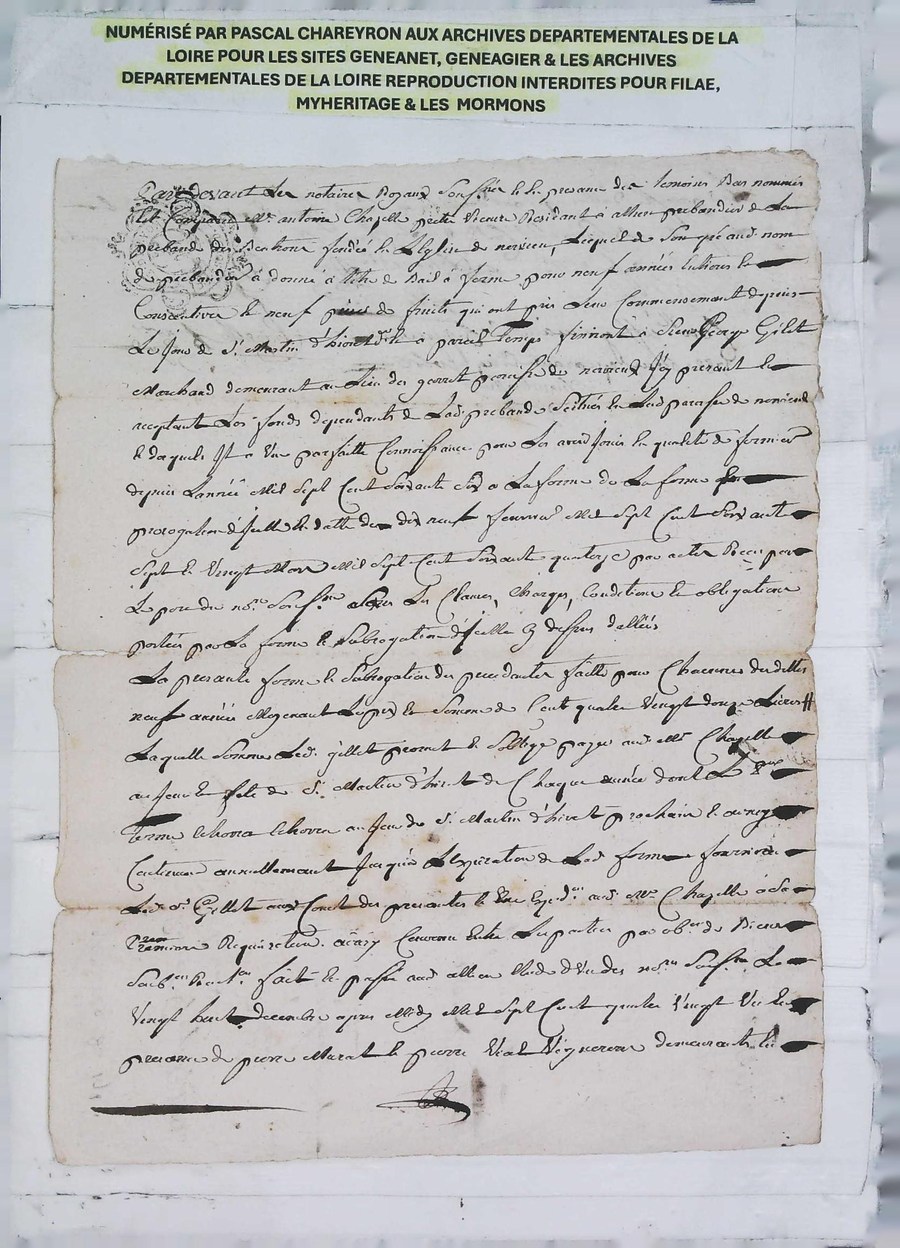 NUMÉRISÉ PAR PASCAL CHAREYRON AUX ARCHIVES DEPARTEMENTALES DE LA
LOIRE POUR LES SITES GENEANET, GENEAGIER & LES ARCHIVES
DEPARTEMENTALES DE LA LOIRE REPRODUCTION INTERDITES POUR FILAE,
MYHERITAGE & LES MORMONS
Pardevant les notaires Royaux Sousnes et en presance des temoins Bas nommés
fut Comparu Mre antoine Chapelle pretre Vicaire Residant à prebandier de La
prebande des fondée en L'Eglise de nervieu, Lequel de Son gré aud. nom
de prebandier à donné à titre de Bail à ferme pour neuf années Entieres et
Consecutives et neuf prises de fruits qui ont pris Leur Commensement depuis
Le Jour de St. Martin d'hiver et a pareil Temps finiront à Sieur George Gilet
Marchand demeurant au Lieu des garret paroisse de nervieux Icy presant et
acceptant Les fonds dependants de Lad. prebande Scitués en Lad. paroisse de nervieux
et desquels Il a Une parfaite Connoissance pour Les avoir Jouis en qualité de fermier
depuis L'année Mil Sept Cent Soixante Six a La forme de La ferme
prorogation d'Icelle en datte des dix neuf fevrier Mil Sept Cent Soixante
Sept et Vingt Mars Mil Sept Cent Soixante quatorze par actes Recus par
Le pere du nore Sousne Sous Les Clauses, Charges, Conditions et obligations
portées par La ferme et Subrogation d'Icelle Cy dessus dattées
La presante ferme et Subrogation des precedantes faitte pour Chacunes desdittes
neuf années Moyenant Le prix et Somme de Cent quatre Vingt douze Livres
Laquelle Somme Led. gillet promet et S'oblige payer aud. Mre Chapelle
au Jour et fete de St. Martin d'hiver de Chaque année dont Le
Terme au Jour de St. Martin d'hiver prochain et
Continuer annuellement Jusqu'à L'Expiration de Lad. ferme fournira
Led. Sr. Gillet aux Cout des presantes et Une aud. Mre Chapelle à Sa
premiere Requisition. ainsy Convenu Entre Les parties par de Biens
fait et passé aud. Etude d'Un des nores Sousnes Le
Vingt huit decembre apres Midy Mil Sept Cent quatre Vingt Un En
presance de pierre Murat et pierre Vial Vigneron demeurants